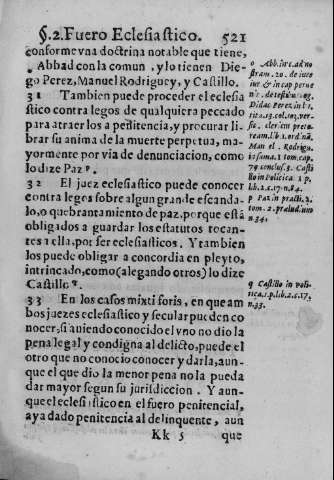 §.2. Fuero Eclesiastico. 521
conforme vna doctrina notable que tiene,
Abbad con la comun, y lo tienen Die-
go Perez, Manuel Rodriguez, y Castillo.
31 Tambien puede proceder el eclesia
stico contra legos de qualquiera peccado
para atraerlos a penitencia, y procurar li-
brar su anima de la muerte perpetua, ma-
yormente por via de denunciacion, como
lo dize Paz p.
32 El juez eclesiastico puede conocer
contra legos sobre algun grande escanda-
lo, o quebrantamiento de paz, porque está
obligados a guardar los estatutos tocan-
tes a ella, por ser eclesiasticos. Y tambien
los puede obligar a concordia en pleyto,
intrincado, como (alegando otros) lo dize
Castillo q.
33 En los casos mixti foris, en que am
bos juezes eclesiastico y secular pueden co
nocer, si auiendo conocido el vno no dio la
pena legal y condigna al delicto, puede el
otro que no conocio conocer y darla, aun-
que el que dio la menor pena no la pueda
dar mayor segun su jurisdiccion. Y aun-
que el eclesiastico en el fuero penitencial,
aya dado penitencia al delinquente, aun
Kk 5 que
o Abb. in c. ad no
stram. 20. de iure
iur & in cap perue
Didac Perez in l.
Man el. Rodrigu.
io suma. 1 tom. cap.
79 conclus. 3. Casti
llo in Politica 1 p.
lib. 2. c. 17. n. 84.
p Paz in practi. 2.
tom. 2. praludi. uno
n. 34.
q Castillo in poli-
tica. 1. p. lib. 2. c. 17.
n. 33.